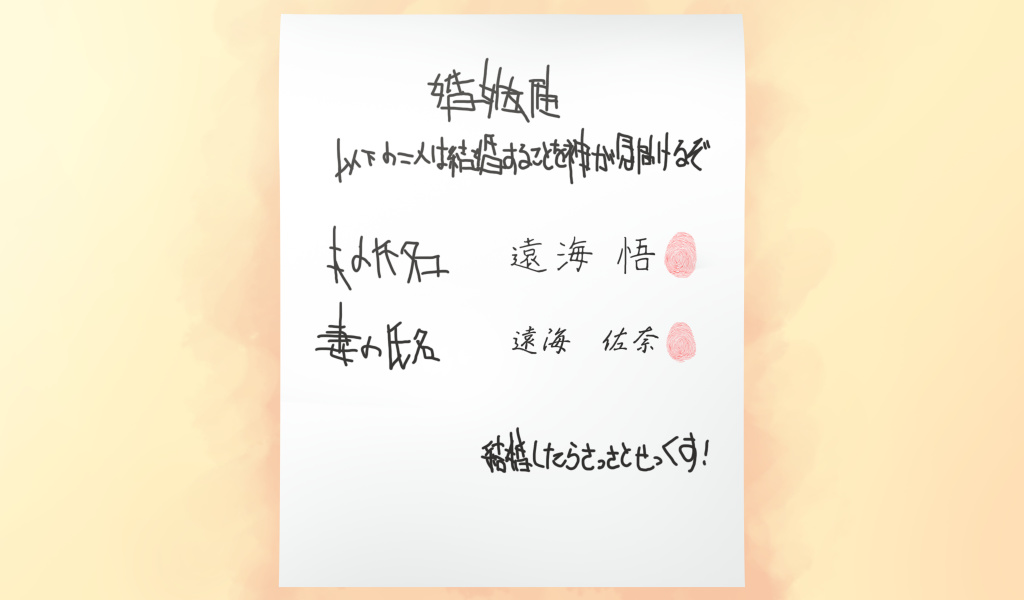 婚姻届
以下の二人は結婚することを神が見届けるぞ
夫の氏名 遠海 悟
妻の氏名 遠海 佐奈
結婚したらさっさとせっくす!